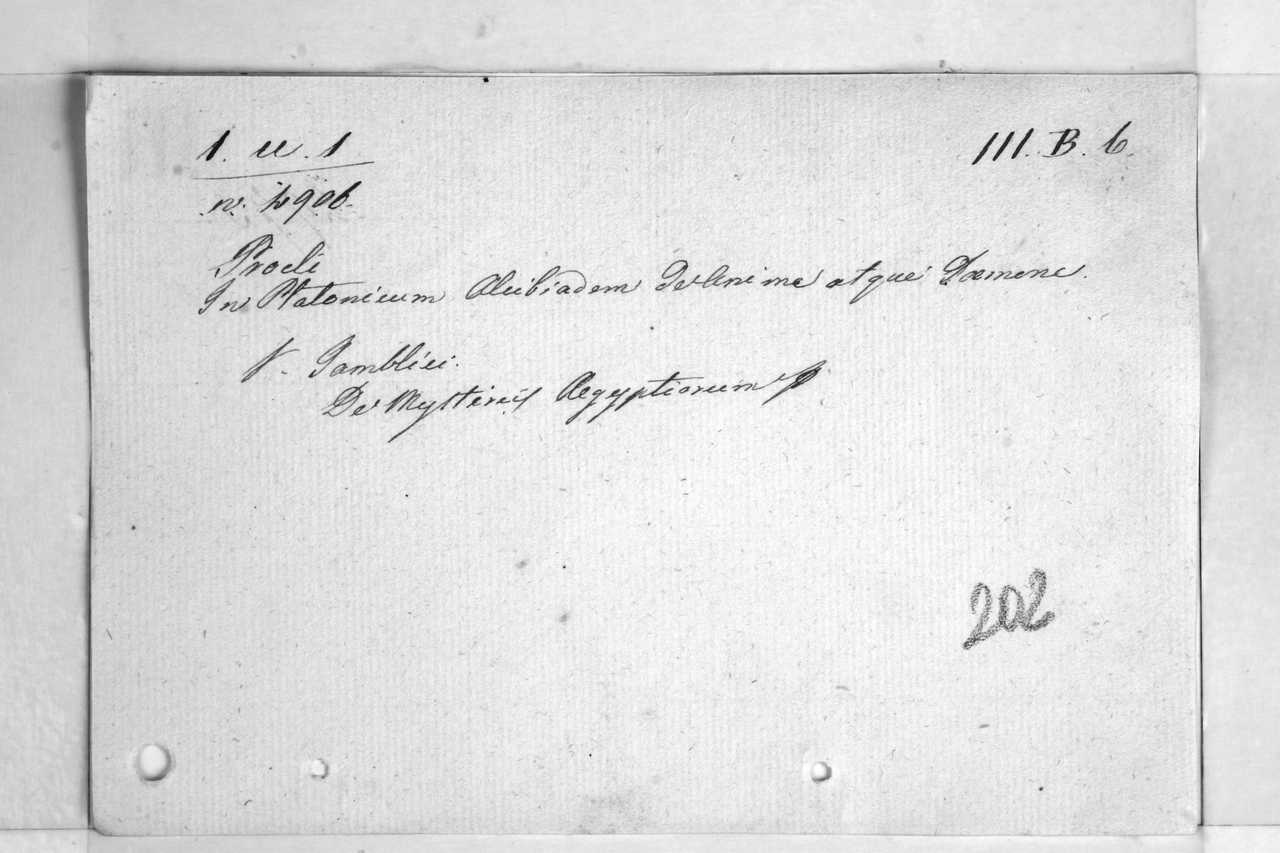 1. u. 1
III. B. 6.
n. 4906.
Procli
In Platonicum Alcibiadem de Anima atque Dæmone.
v. Jamblici.
De Mysteriis Aegyptiorum
202